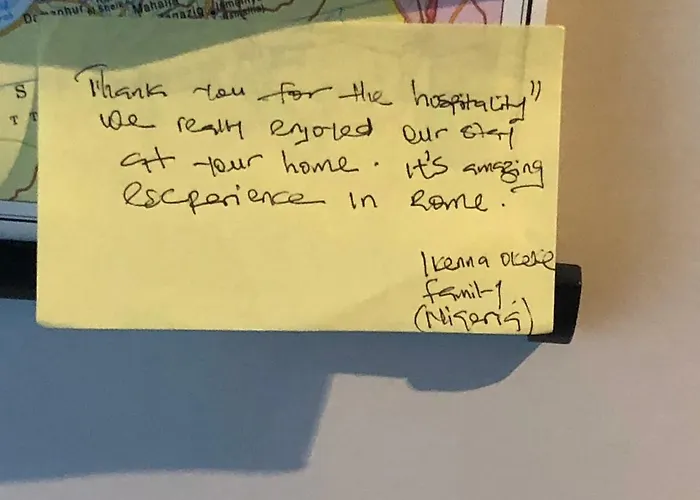 Damanhur
Mahalla
S
T T
Thank you for the hospitality"
we really enjoyed our stay
at your home. it's amazing
escperience in Rome.
Ikenna Okeke
family.
(Nigeria)